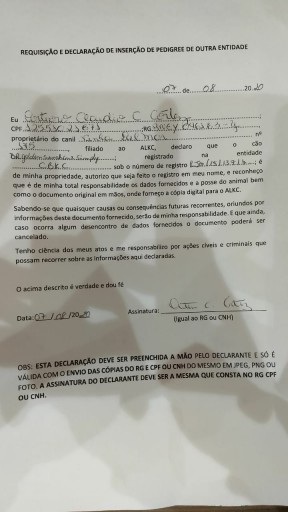 REQUISIÇÃO E DECLARAÇÃO DE INSERÇÃO DE PEDIGREE DE OUTRA ENTIDADE
07 de 08 2020
Eu Claudio C.
CPF RG
proprietário do canil nº
, filiado ao ALKC, declaro que o cão
registrado na entidade
CBKC sob o número de registro ; é
de minha propriedade, autorizo que seja feito o registro em meu nome, e reconheço
que é de minha total responsabilidade os dados fornecidos e a posse do animal bem
como o documento original em mãos, onde forneço a cópia digital para o ALKC.
Sabendo-se que quaisquer causas ou consequências futuras recorrentes, oriundos por
informações deste documento fornecido, serão da minha responsabilidade. E que ainda,
caso ocorra algum desencontro de dados fornecidos o documento poderá ser
cancelado.
Tenho ciência dos meus atos e me responsabilizo por ações cíveis e criminais que
possam recorrer sobre as informações aqui declaradas.
O acima descrito é verdade e dou fé
Data: 07/08/2020 Assinatura:
(Igual ao RG ou CNH)
OBS: ESTA DECLARAÇÃO DEVE SER PREENCHIDA A MÃO PELO DECLARANTE E SÓ É
VÁLIDA COM O ENVIO DAS CÓPIAS DO RG E CPF OU CNH DO MESMO EM JPEG, PNG OU
FOTO, A ASSINATURA DO DECLARANTE DEVE SER A MESMA QUE CONSTA NO RG CPF
OU CNH.